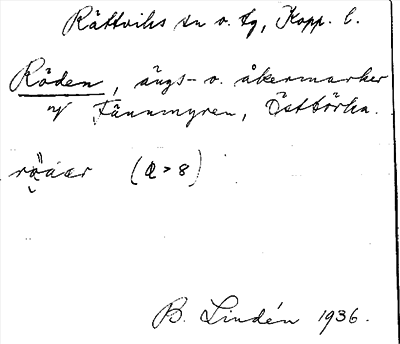 Rättviks sn o. tg, Kopp. l.
Röden, ängs- o. åkermarker
v/ Tännmyren, Östbörka.
(a > 8)
B. Lindén 1936.